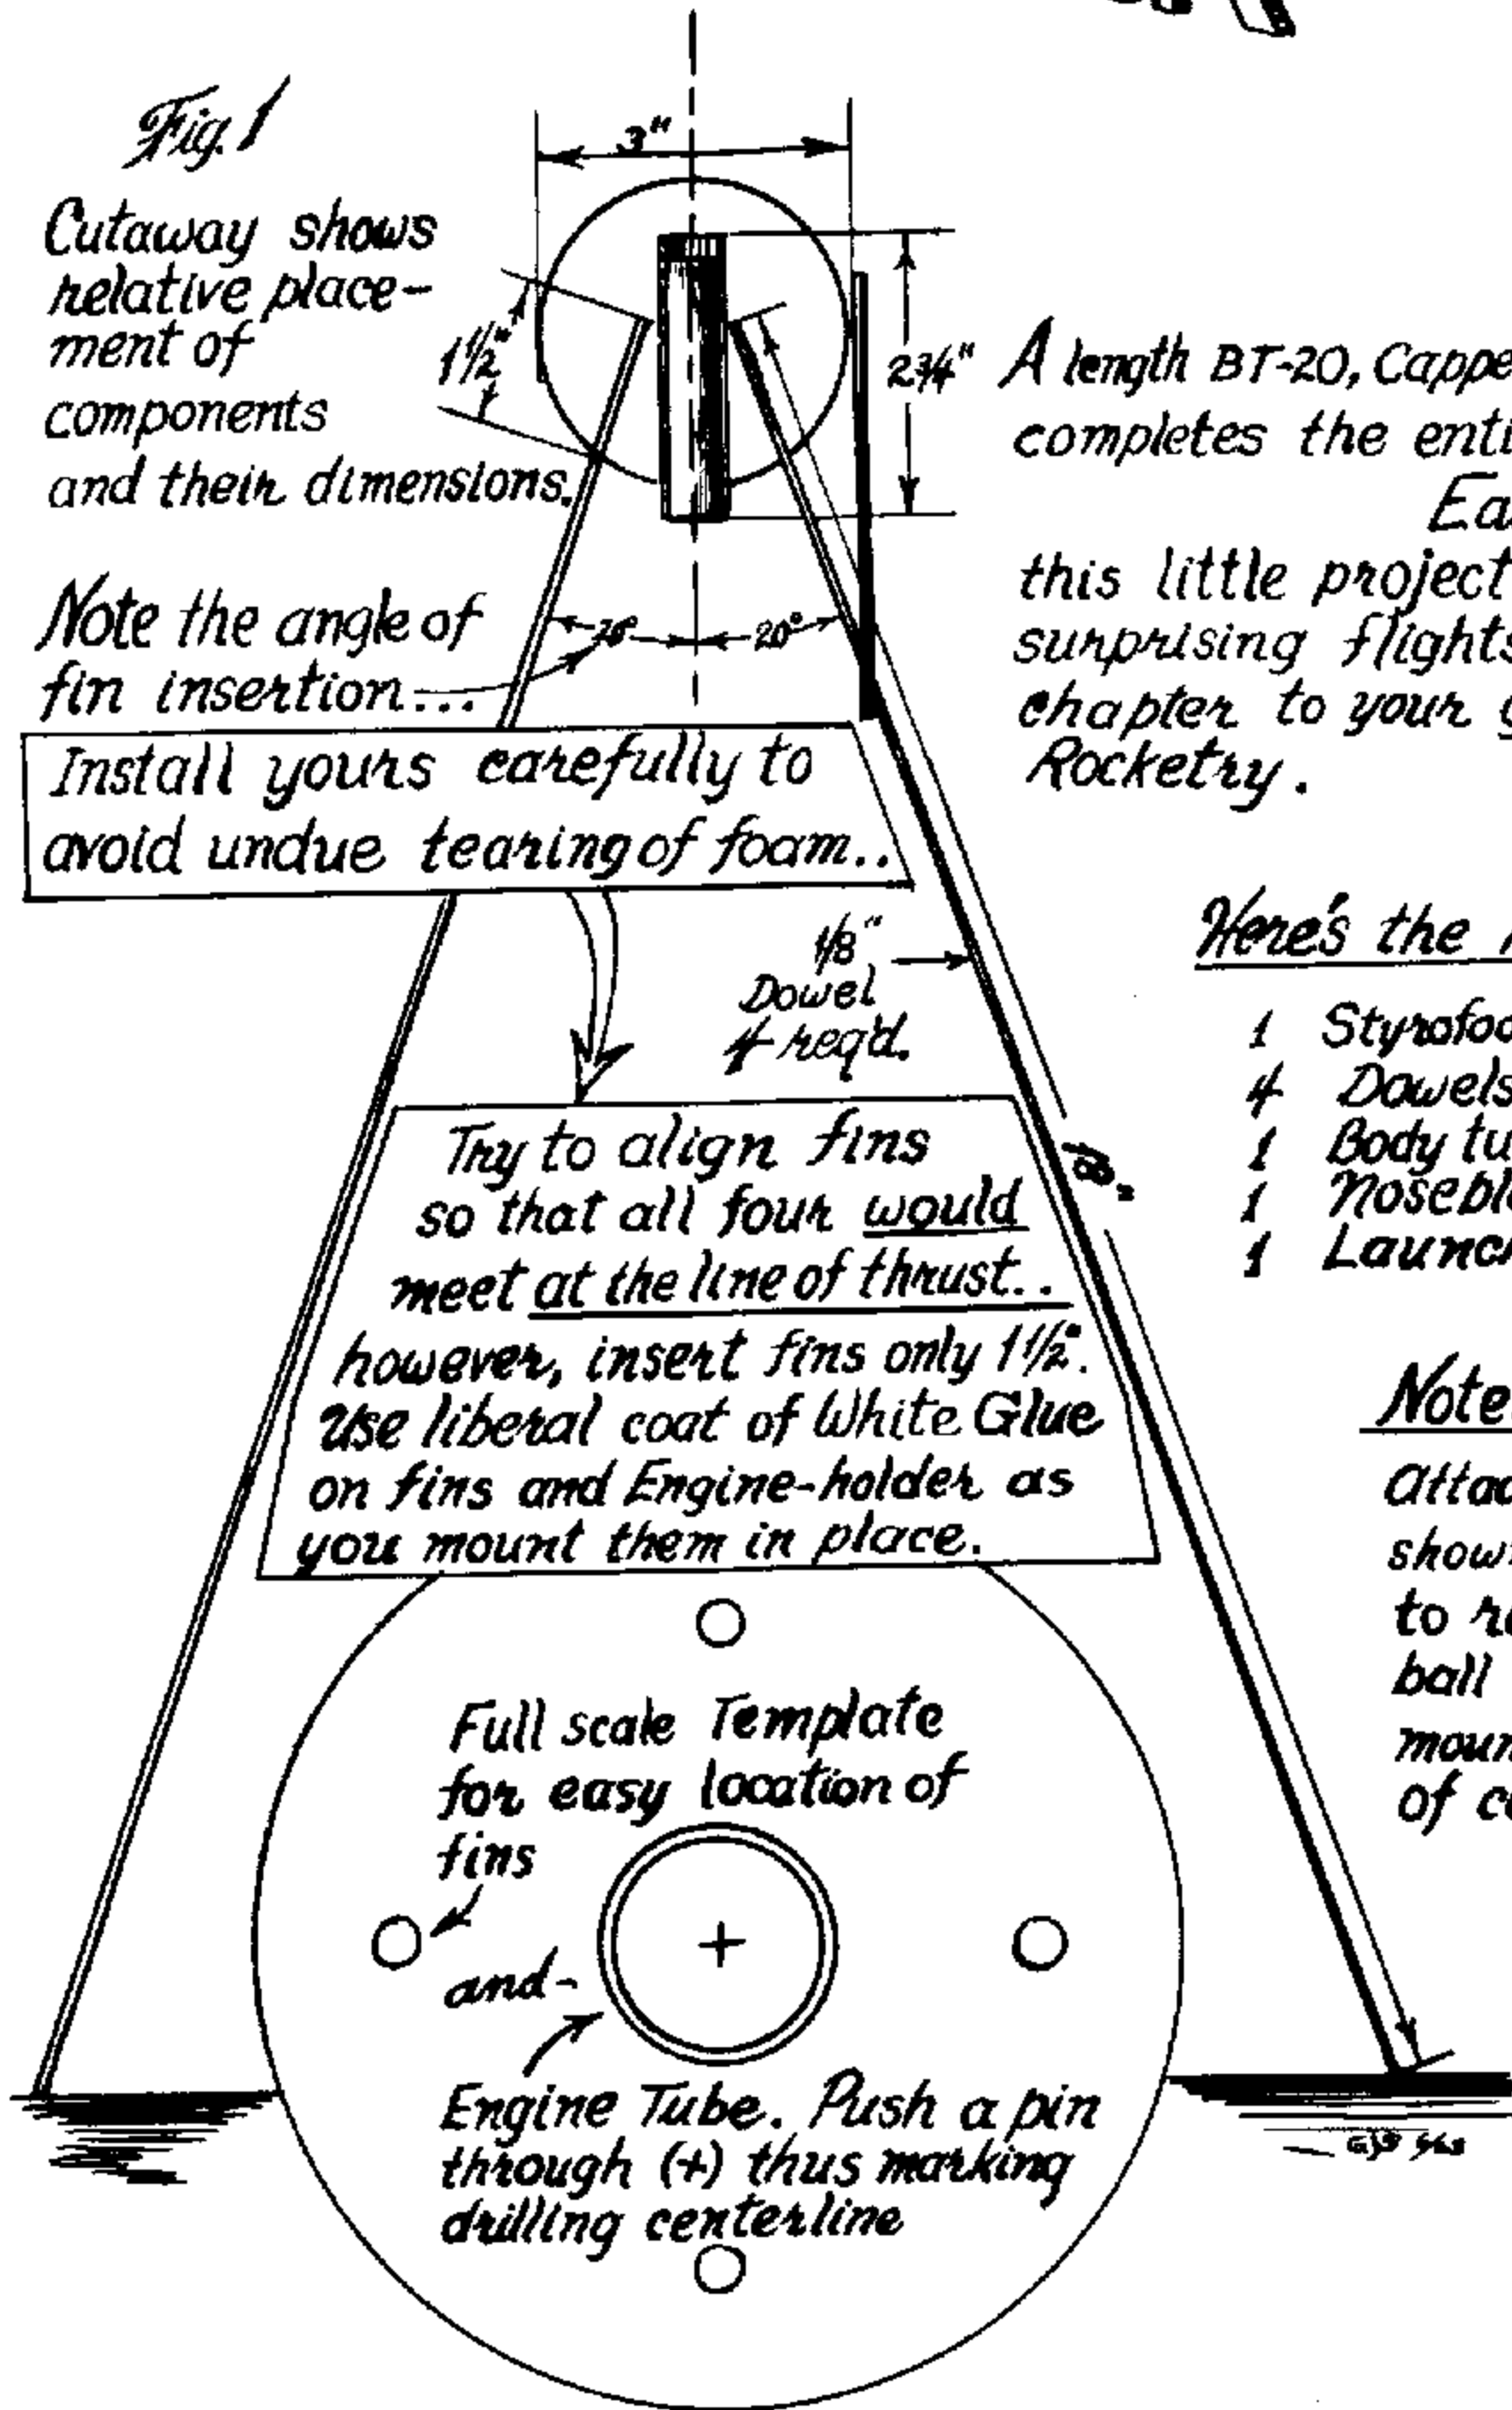 Fig. 1
Cutaway shows
relative place-
ment of
components
and their dimensions.
3"
1 1/2"
2 3/4"
Note the angle of
fin insertion...
20°
20°
Install yours carefully to
avoid undue tearing of foam..
1/8"
Dowel
4 req'd.
Try to align fins
so that all four would
meet at the line of thrust..
however, insert fins only 1 1/2".
Use liberal coat of White Glue
on fins and Engine-holder as
you mount them in place.
18"
Full scale Template
for easy location of
fins
and-
Engine Tube. Push a pin
through (+) thus marking
drilling centerline
A length BT-20, Cappe
completes the enti
Ea
this little project
surprising flights
chapter to your g
Rocketry.
Here's the
1 Styrofoa
4 Dowels
1 Body tu
1 Noseblo
1 Launch
Note
Attac
shown
to re
ball
moun
of ce